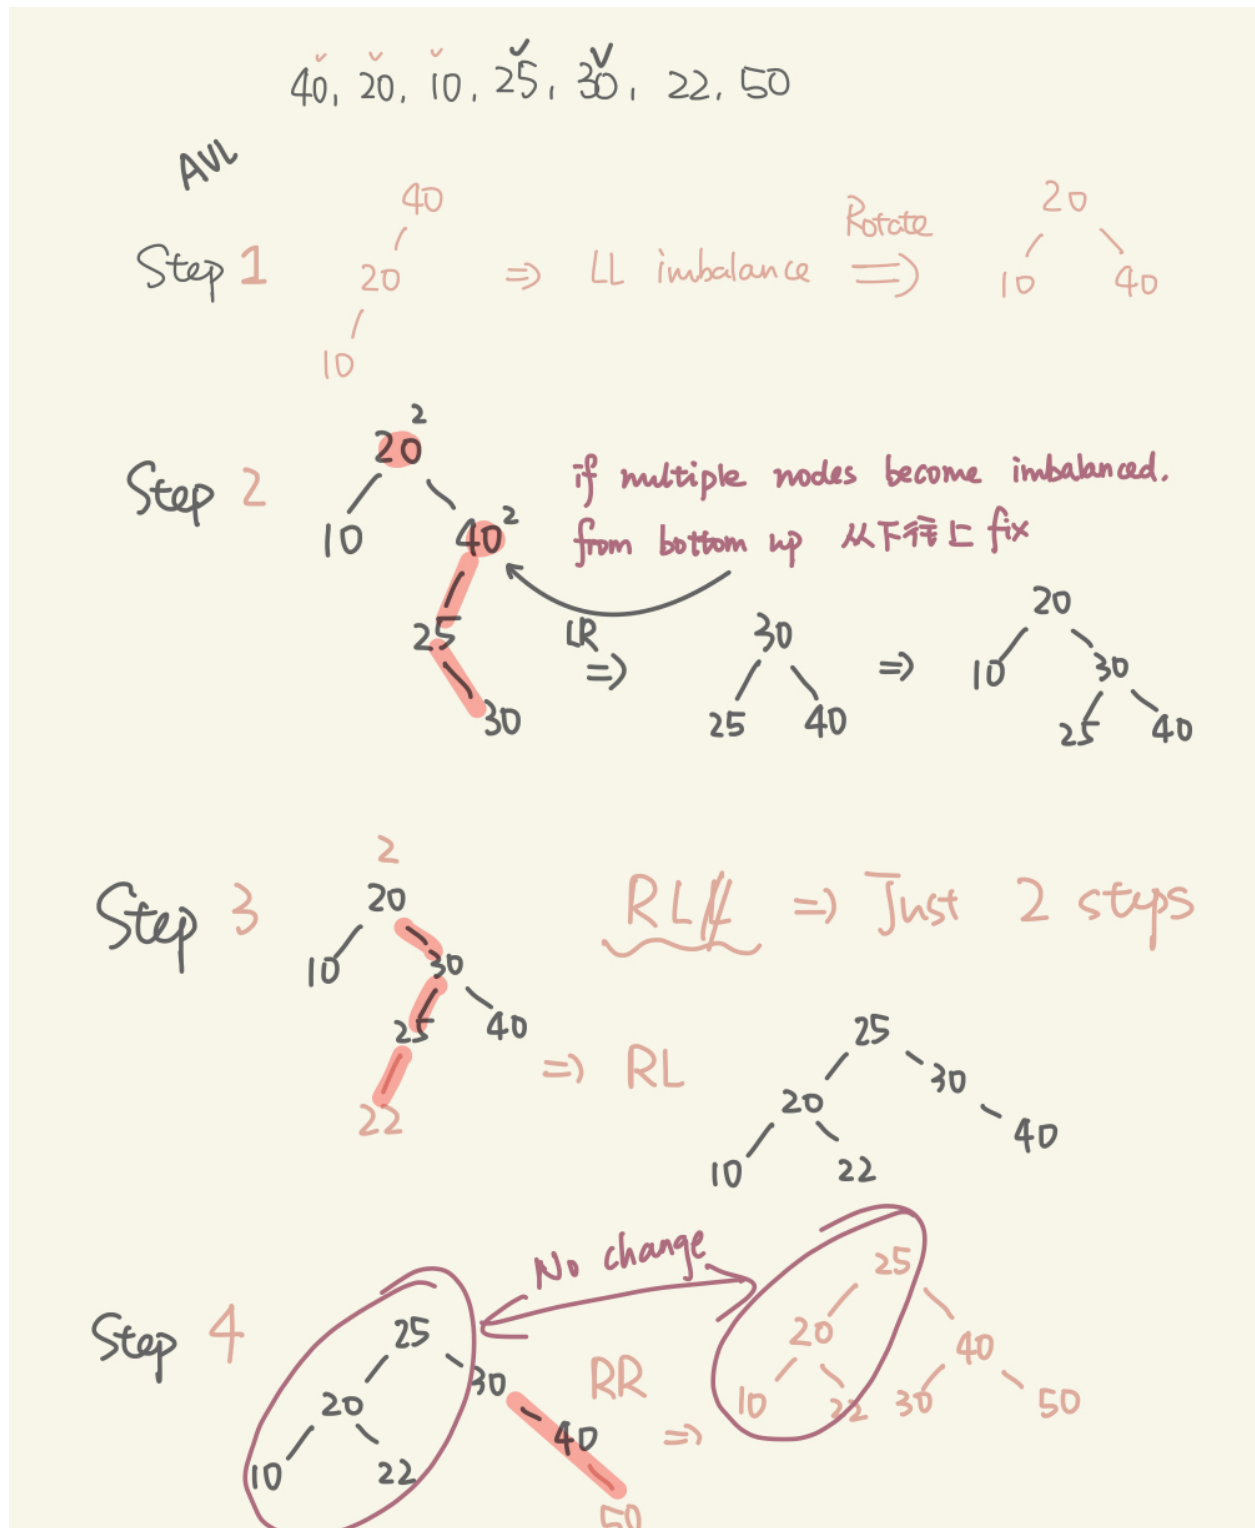 40, 20, 10, 25, 30, 22, 50
AVL
40
Step 1
20
10
=> LL imbalance
Rotate
=>
20
10 40
Step 2
2
20
10
2
40
25
30
if multiple nodes become imbalanced.
from bottom up 从下往上 fix
LR
=>
30
25 40
=>
20
10 30
25 40
Step 3
2
20
10 30
25 40
22
RL
=> Just 2 steps
=> RL
25
20 30
40
10 22
No change
Step 4
25
20 30
10 22 40
50
RR
=>
25
20 40
10 22 30 50